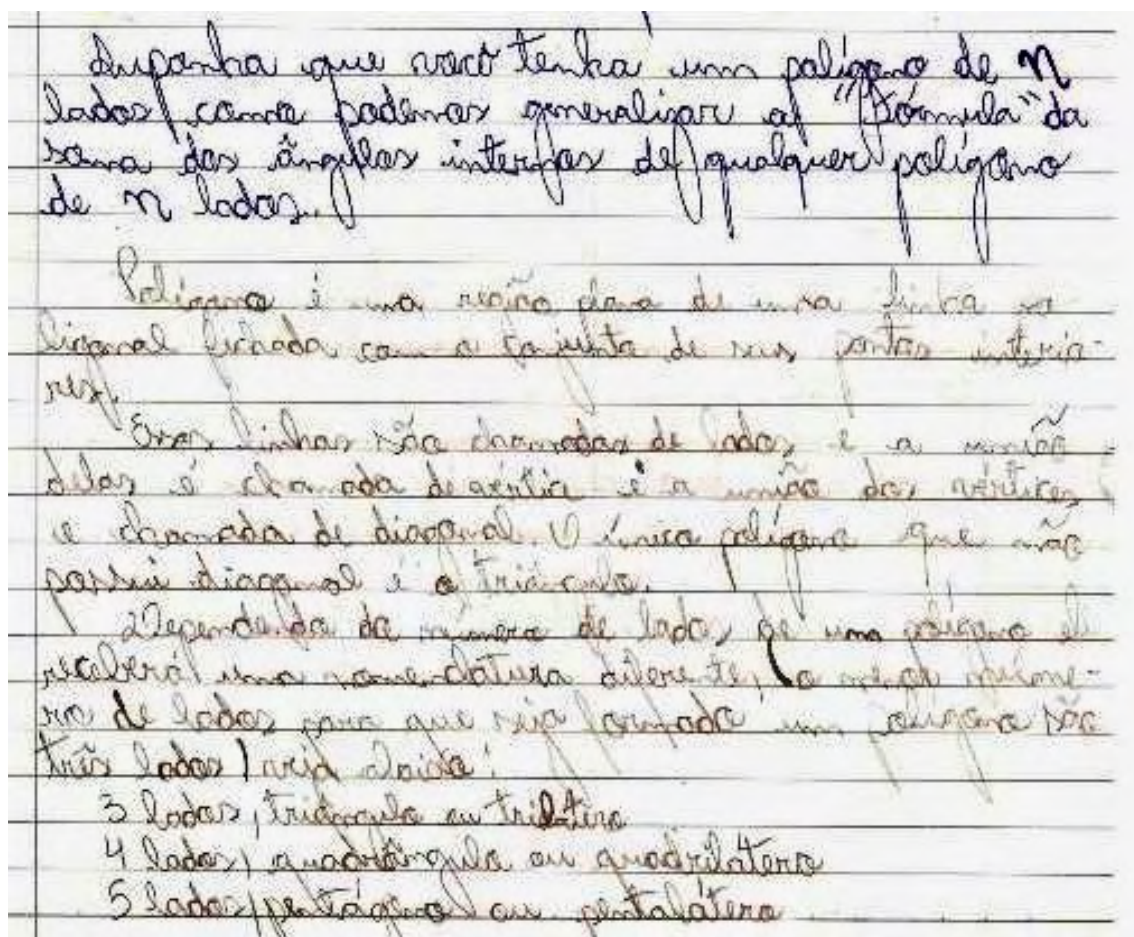 Suponha que você tenha um polígono de n
lados, como podemos generalizar a "fórmula" da
soma dos ângulos internos de qualquer polígono
de n lados.
Polígono é uma região plana de uma linha po-
ligonal fechada com o conjunto de seus pontos interio-
res.
Essas linhas são chamadas de lados e a união
delas é chamada de vértice e a união dos vértices
é chamada de diagonal. O único polígono que não
possui diagonal é o triângulo.
Dependendo do número de lados de um polígono ele
receberá uma nomenclatura diferente, (o menor núme-
ro de lados para que seja formado um polígono são
três lados) veja abaixo:
3 lados, triângulo ou trilátero
4 lados, quadrângulo ou quadrilátero
5 lados, pentágono ou pentalátero